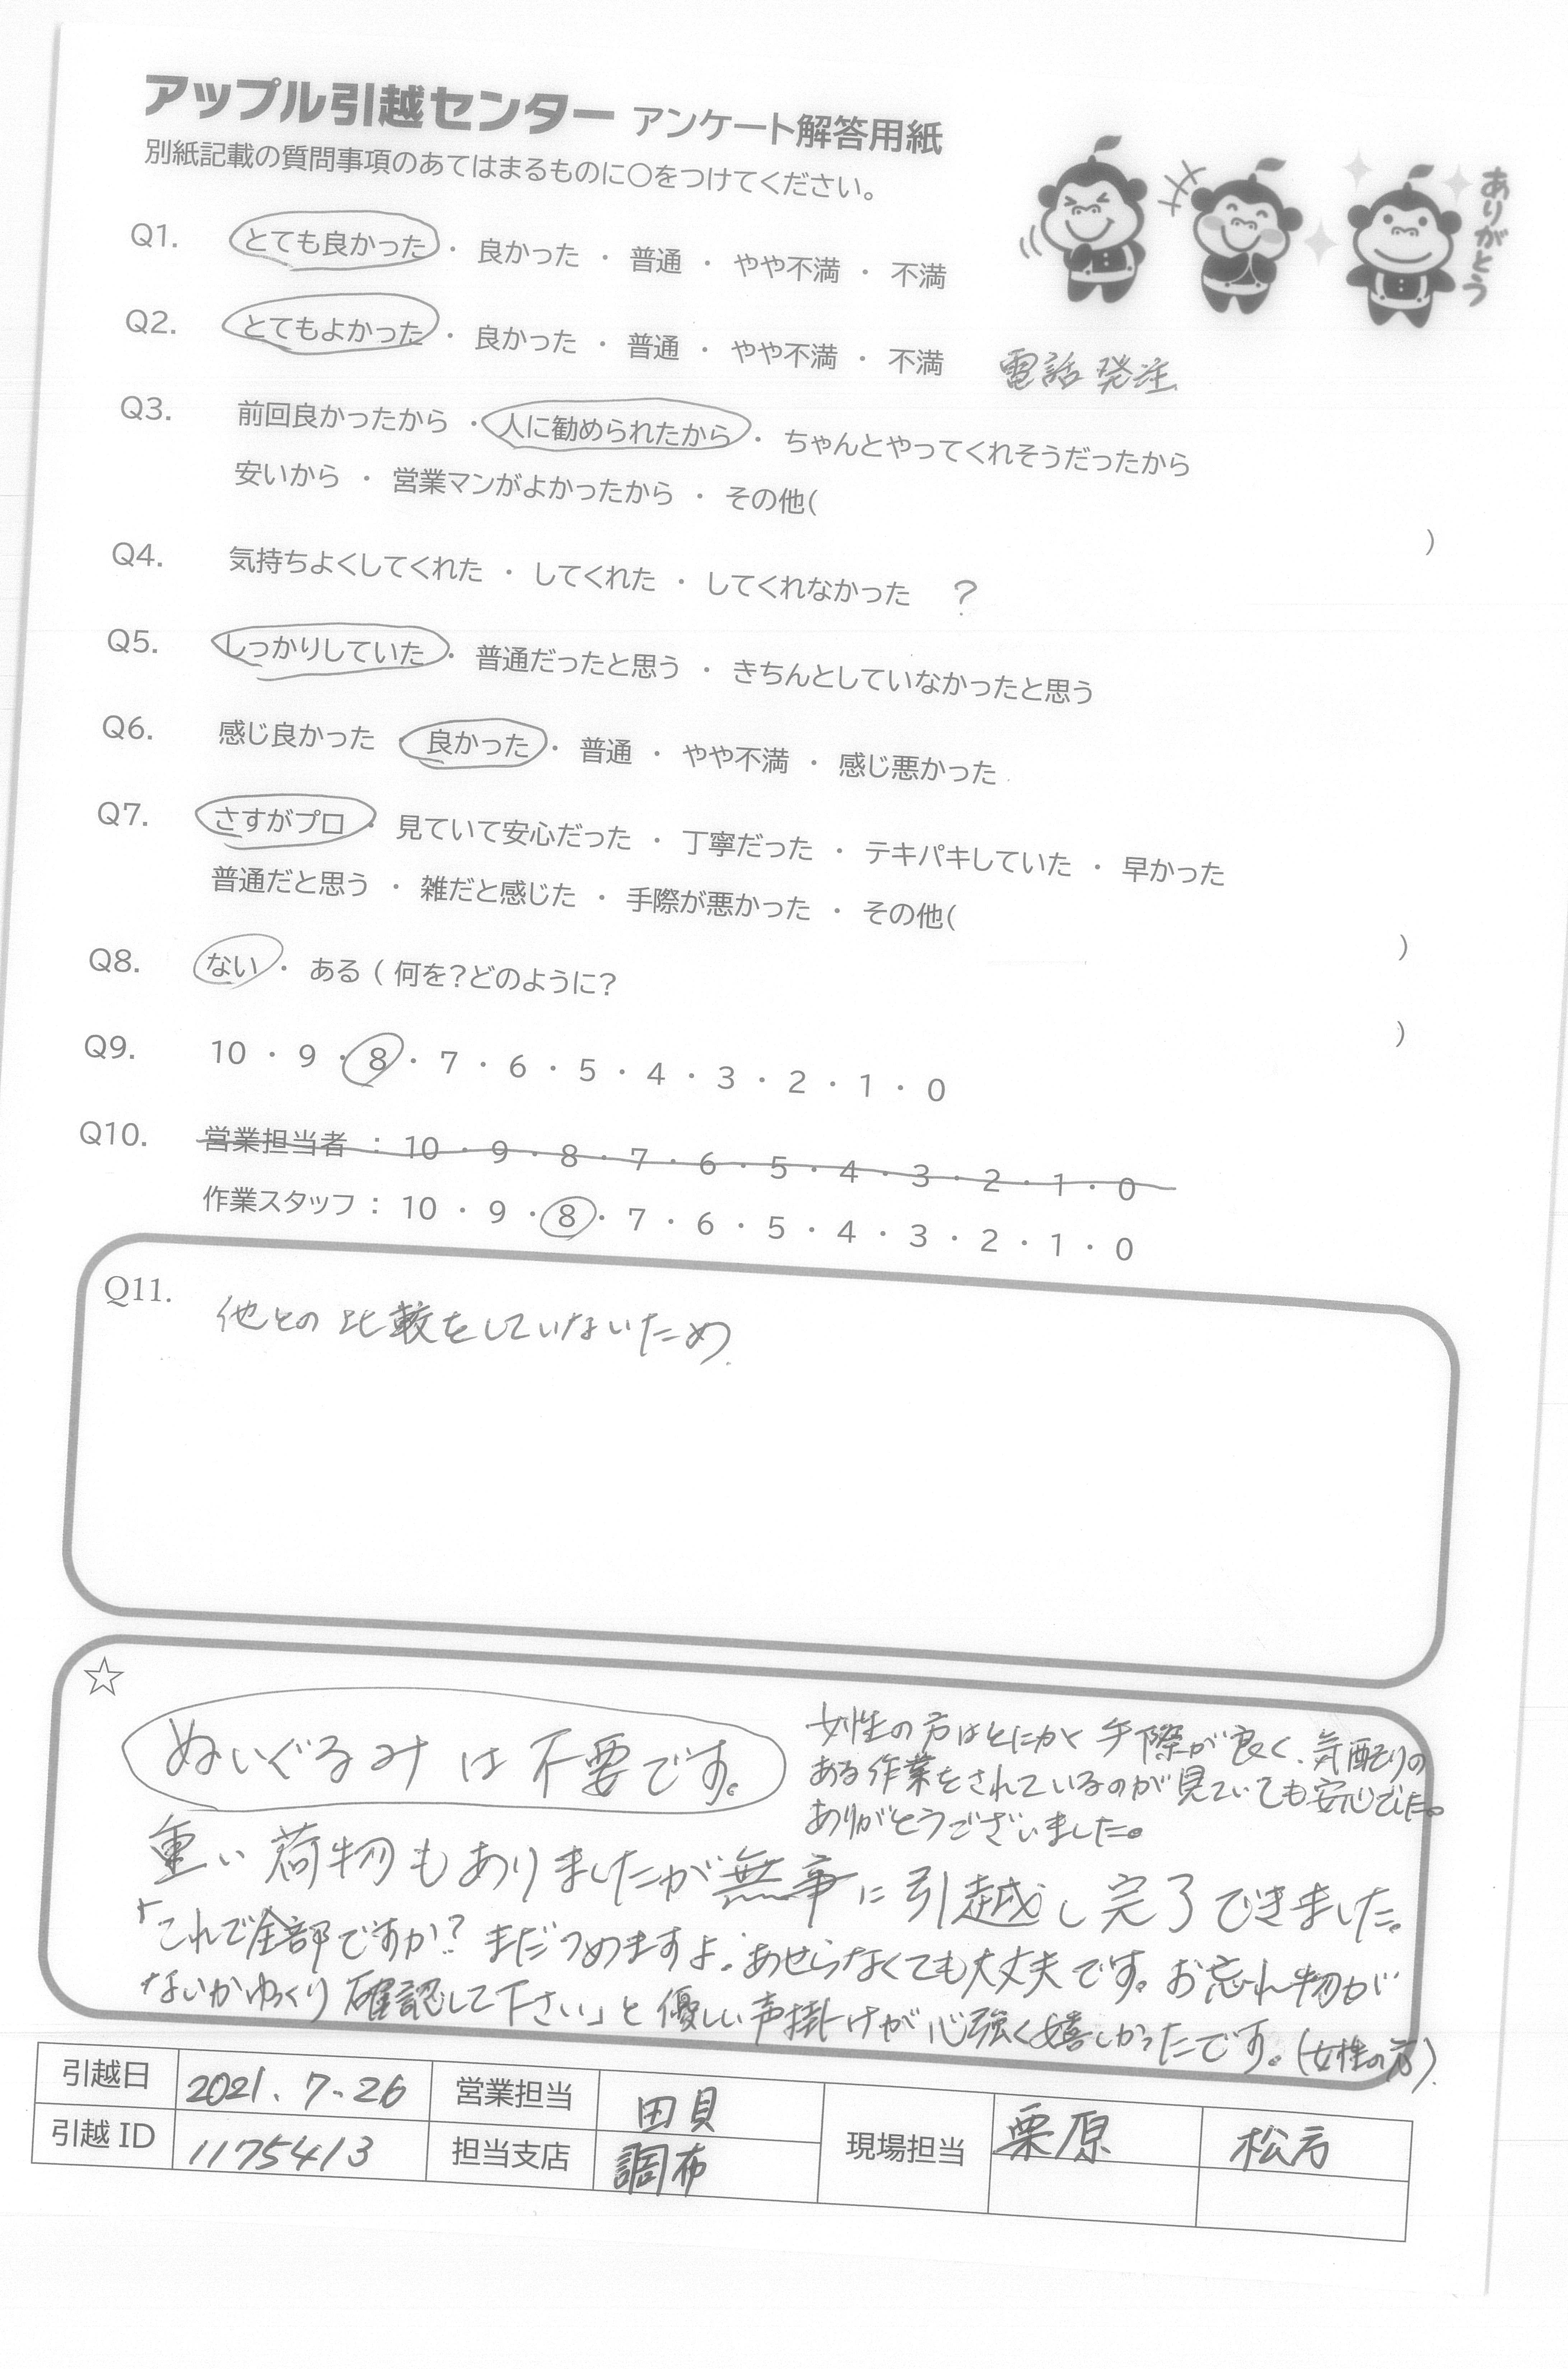 アップル引越センター アンケート解答用紙
別紙記載の質問事項のあてはまるものに○をつけてください。
ありがとう
Q1. とても良かった ・ 良かった ・ 普通 ・ やや不満 ・ 不満
Q2. とてもよかった ・ 良かった ・ 普通 ・ やや不満 ・ 不満 電話発注
Q3. 前回良かったから ・ 人に勧められたから ・ ちゃんとやってくれそうだったから
安いから ・ 営業マンがよかったから ・ その他( )
Q4. 気持ちよくしてくれた ・ してくれた ・ してくれなかった ?
Q5. しっかりしていた ・ 普通だったと思う ・ きちんとしていなかったと思う
Q6. 感じ良かった ・ 良かった ・ 普通 ・ やや不満 ・ 感じ悪かった
Q7. さすがプロ ・ 見ていて安心だった ・ 丁寧だった ・ テキパキしていた ・ 早かった
普通だと思う ・ 雑だと感じた ・ 手際が悪かった ・ その他( )
Q8. ない ・ ある ( 何を?どのように? )
Q9. 10 ・ 9 ・ 8 ・ 7 ・ 6 ・ 5 ・ 4 ・ 3 ・ 2 ・ 1 ・ 0
Q10. 営業担当者 : 10 ・ 9 ・ 8 ・ 7 ・ 6 ・ 5 ・ 4 ・ 3 ・ 2 ・ 1 ・ 0
作業スタッフ : 10 ・ 9 ・ 8 ・ 7 ・ 6 ・ 5 ・ 4 ・ 3 ・ 2 ・ 1 ・ 0
Q11. 他との比較をしていないため
☆
ぬいぐるみは不要です。
女性の方はとにかく手際が良く、気配りの
ある作業をされているのが見ていても安心でした。
ありがとうございました。
重い荷物もありましたが無事に引越し完了できました。
「これで全部ですか？まだつめますよ。あせらなくても大丈夫です。お忘れ物が
ないかゆっくり確認して下さい」と優しい声掛けが心強く嬉しかったです。(女性の方)
引越日 2021.7.26 営業担当 田貝 現場担当 栗原 松方
引越 ID 1175413 担当支店 調布